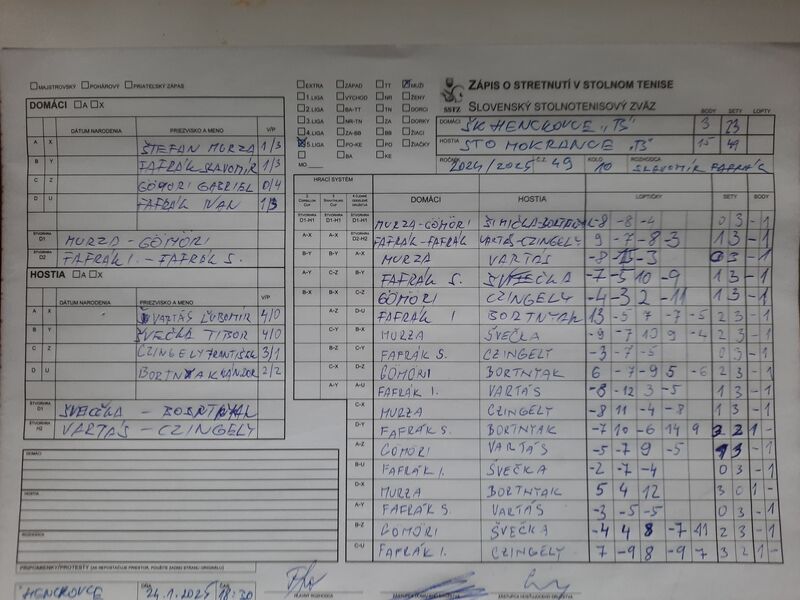 MAJSTROVSKÝ POHÁROVÝ PRIATEĽSKÝ ZÁPAS
DOMÁCI A X
DÁTUM NARODENIA PRIEZVISKO A MENO V/P
A X ŠTEFAN MURZA 1/3
B Y FAFRÁK SLAVOMÍR 1/3
C Z GÖMÖRI GABRIEL 0/4
D U FAFRÁK IVAN 1/3
ŠTVORHRA D1 MURZA - GÖMÖRI
D2 FAFRÁK I. - FAFRÁK S.
HOSTIA A X
DÁTUM NARODENIA PRIEZVISKO A MENO V/P
A X VARTÁS ĽUBOMÍR 4/0
B Y ŠVEČKA TIBOR 4/0
C Z CZINGELY FRANTIŠEK 3/1
D U BORTNYAK 2/2
ŠTVORHRA D1 ŠVEČKA - BORTNYAK
ŠTVORHRA H2 VARTÁS - CZINGELY
DOMÁCI
HOSTIA
ROZHODCA
PRIPOMIENKY/PROTESTY (AK NEPOSTAČUJE PRIESTOR, POUŽITE ZADNÚ STRANU ORIGINÁLU)
HENCKOVCE DŇA 24.1.2025 ČAS 18:30
HLAVNÝ ROZHODCA
EXTRA ZÁPAD TT MUŽI
1. LIGA VÝCHOD NR ŽENY
2. LIGA BA-TT TN DORCI
3. LIGA NR-TN ZA DORKY
4. LIGA ZA-BB BB ŽIACI
5. LIGA PO-KE PO ŽIAČKY
BA KE
MO
SSTZ
ZÁPIS O STRETNUTÍ V STOLNOM TENISE
SLOVENSKÝ STOLNOTENISOVÝ ZVÄZ
BODY SETY LOPTY
DOMÁCI ŠK HENCKOVCE "B" 3 23
HOSTIA STO MOKRANCE "B" 15 49
ROČNÍK 2024/2025 Č.Z. 49 KOLO 10 ROZHODCA SLAVOMÍR FAFRÁK
HRACÍ SYSTÉM
DOMÁCI HOSTIA LOPTIČKY SETY BODY
MURZA-GÖMÖRI -8 -8 -4 0 3 -1
FAFRÁK-FAFRÁK VARTÁS-CZINGELY 9 -7 -8 -3 1 3 -1
MURZA VARTÁS 3 -1
FAFRÁK S. ŠVEČKA -7 -5 10 -9 1 3 -1
GÖMÖRI CZINGELY -4 -3 2 -11 1 3 -1
FAFRÁK I BORTNYAK 13 -5 7 -7 -5 2 3 -1
MURZA ŠVEČKA -9 -7 10 9 -4 2 3 -1
FAFRÁK S. CZINGELY -3 -7 -5 0 3 -1
GÖMÖRI BORTNYAK 6 -7 -9 5 -6 2 3 -1
FAFRÁK I. VARTÁS -8 -12 3 -5 1 3 -1
MURZA CZINGELY -8 11 -4 -8 1 3 -1
FAFRÁK S. BORTNYAK -7 10 -6 14 9 3 2 1 -
GÖMÖRI VARTÁS -5 -7 9 -5 1 3 -1
FAFRÁK I. ŠVEČKA -2 -7 -4 0 3 -1
MURZA BORTNYAK 5 4 12 3 0 1 -
FAFRÁK S VARTÁS -3 -5 -5 0 3 -1
GÖMÖRI ŠVEČKA -4 4 8 -7 -11 2 3 -1
FAFRÁK I. CZINGELY 7 -9 8 -9 7 3 2 1 -